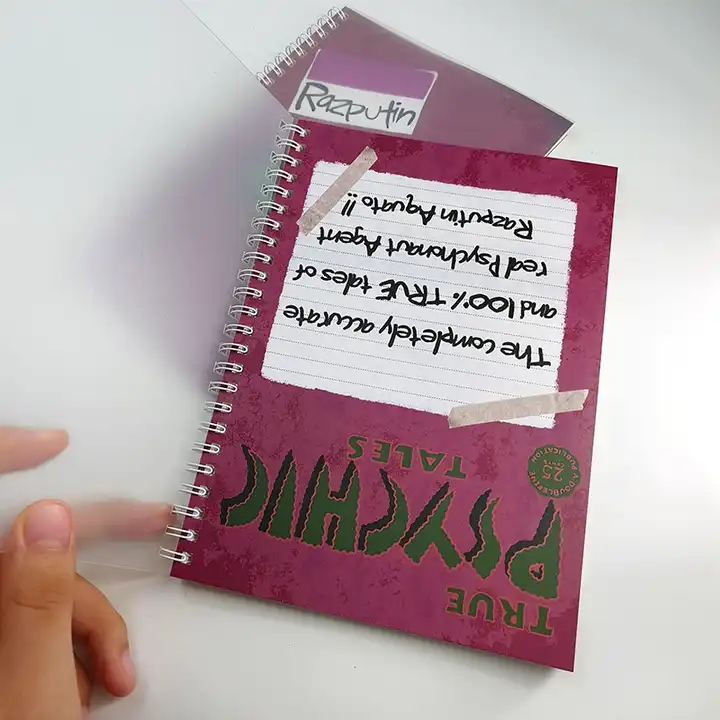 Razputin
TRUE
PSYCHIC
TALES
A DOUBLEFINE PUBLICATION
25
The completely accurate
and 100% TRUE tales of
real Psychonaut Agent
Razputin Aquato!!